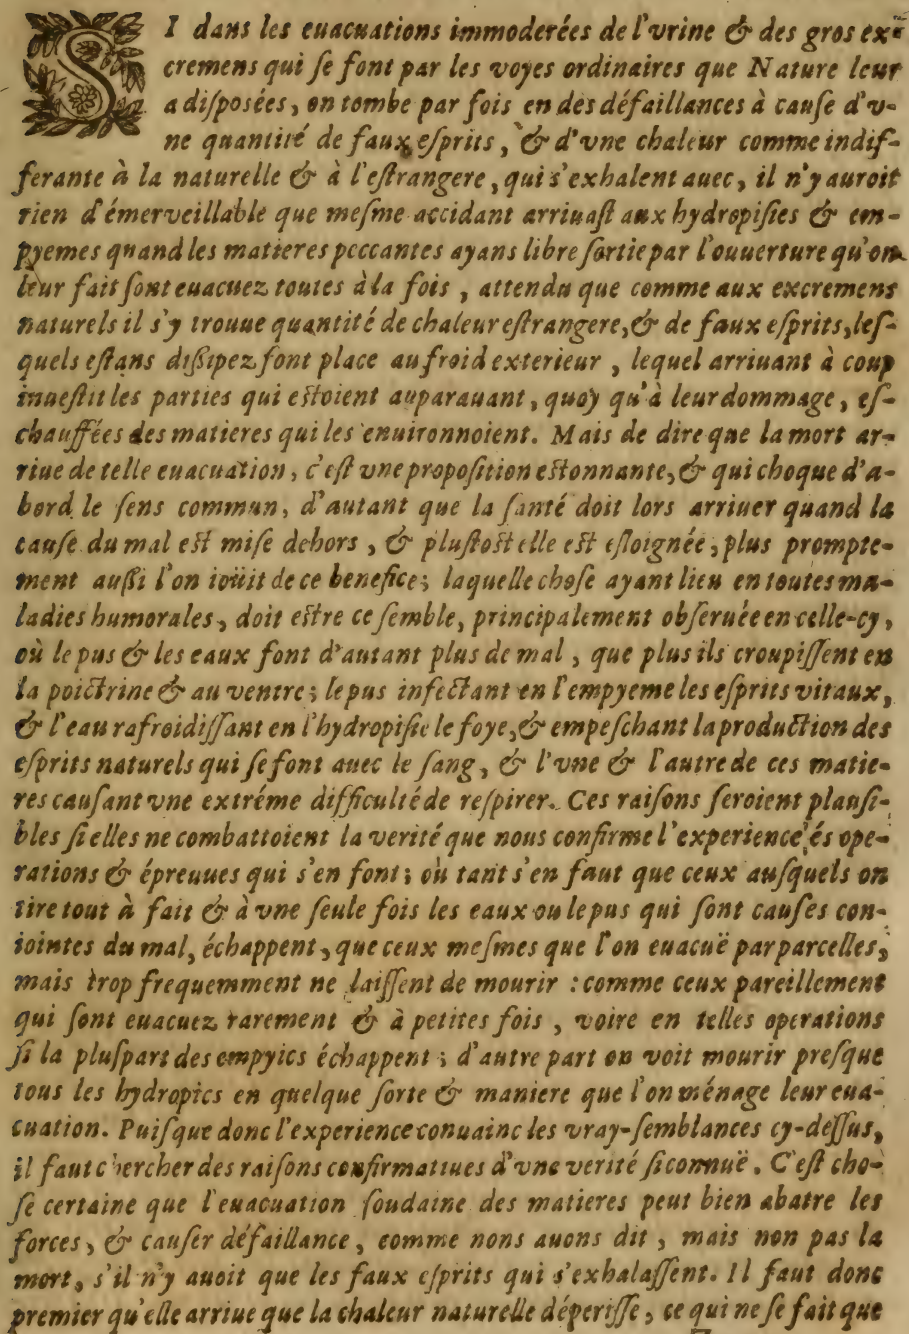 SI dans les euacuations immoderées de l'vrine & des gros ex-
cremens qui ſe font par les voyes ordinaires que Nature leur
a diſpoſées, on tombe par fois en des défaillances à cauſe d'v-
ne quantité de faux eſprits, & d'vne chaleur comme indif-
ferante à la naturelle & à l'eſtrangere, qui s'exhalent auec, il n'y auroit
rien d'émerveillable que meſme accidant arriuaſt aux hydropiſies & em-
pyemes quand les matieres peccantes ayans libre ſortie par l'ouuerture qu'on
leur fait ſont euacuez toutes à la fois, attendu que comme aux excremens
naturels il s'y trouue quantité de chaleur eſtrangere, & de faux eſprits, leſ-
quels eſtans diſſipez font place au froid exterieur, lequel arriuant à coup
inueſtit les parties qui eſtoient auparauant, quoy qu'à leur dommage, eſ-
chauffées des matieres qui les enuironnoient. Mais de dire que la mort ar-
riue de telle euacuation, c'eſt vne propoſition eſtonnante, & qui choque d'a-
bord le ſens commun, d'autant que la ſanté doit lors arriuer quand la
cauſe du mal eſt miſe dehors, & pluſtoſt elle eſt eſloignée, plus prompte-
ment auſſi l'on ioüit de ce benefice; laquelle choſe ayant lieu en toutes ma-
ladies humorales, doit eſtre ce ſemble, principalement obſeruée en celle-cy,
où le pus & les eaux font d'autant plus de mal, que plus ils croupiſſent en
la poictrine & au ventre; le pus infectant en l'empyeme les eſprits vitaux,
& l'eau rafroidiſſant en l'hydropiſie le foye, & empeſchant la production des
eſprits naturels qui ſe font auec le ſang, & l'vne & l'autre de ces matie-
res cauſant vne extréme difficulté de reſpirer. Ces raiſons ſeroient plauſi-
bles ſi elles ne combattoient la verité que nous confirme l'experience és ope-
rations & épreuues qui s'en font; où tant s'en faut que ceux auſquels on
tire tout à fait & à vne ſeule fois les eaux ou le pus qui ſont cauſes con-
iointes du mal, échappent, que ceux meſmes que l'on euacuë par parcelles,
mais trop frequemment ne laiſſent de mourir : comme ceux pareillement
qui ſont euacuez rarement & à petites fois, voire en telles operations
ſi la pluſpart des empyics échappent; d'autre part on voit mourir preſque
tous les hydropics en quelque ſorte & maniere que l'on ménage leur eua-
cuation. Puiſque donc l'experience conuainc les vray-ſemblances cy-deſſus,
il faut chercher des raiſons confirmatiues d'vne verité ſi connuë. C'eſt cho-
ſe certaine que l'euacuation ſoudaine des matieres peut bien abatre les
forces, & cauſer défaillance, comme nons auons dit, mais non pas la
mort, s'il n'y auoit que les faux eſprits qui s'exhalaſſent. Il faut donc
premier qu'elle arriue que la chaleur naturelle déperiſſe, ce qui ne ſe fait que